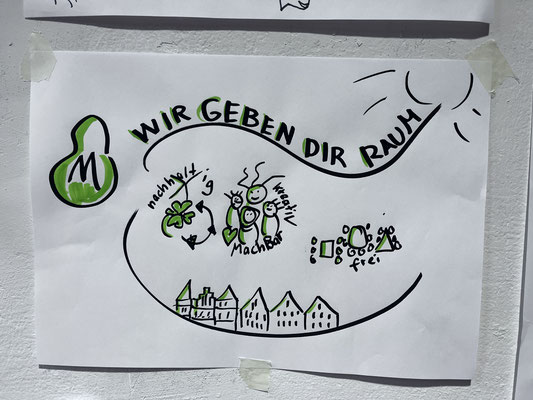 WIR GEBEN DIR RAUM
M
nachhaltig
kreativ
MachBar
frei